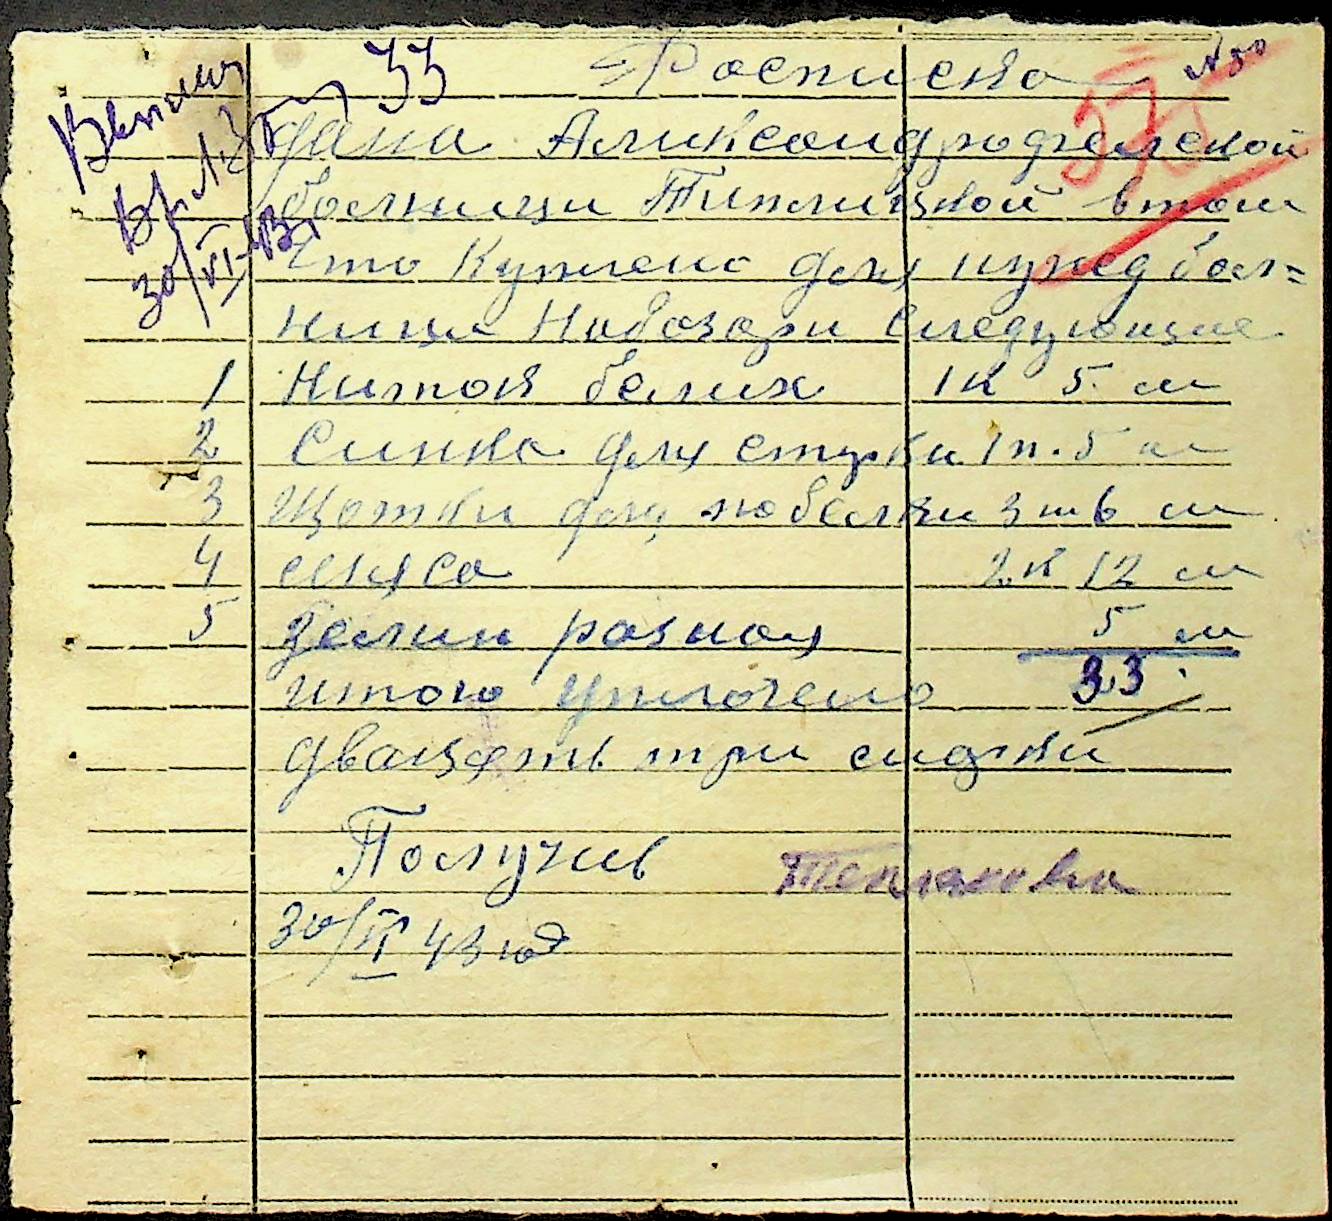 Росписка № 50
33 57
дана Аликсондродфелской
болници Типлицкой втом
Что Куплено для нужед бол=
ници Набозари Следующие
1 Нитой белих 1к 5 м
2 Синка для стирки 1п. 5 м
3 Щотки для побелки 3 ш 6 м
4 мясо 2к 12 м
5 Зелин розной 5 м
итого уплочено 33
дваццеть три марки
Получив Теплякова
30/VI 43 год
30/VI-43